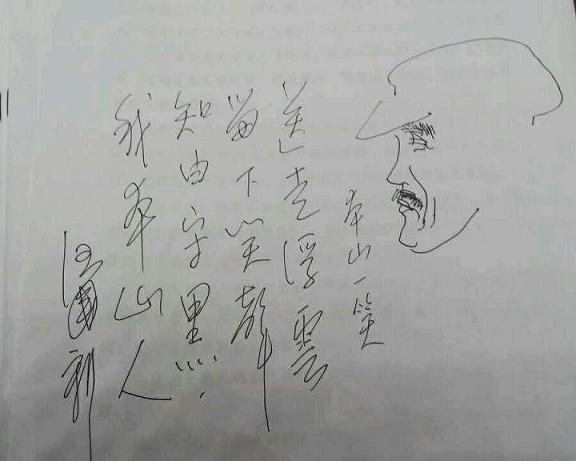 本山一笑
送走浮雲
留下笑聲
知白守黑
我本山人
汪國新